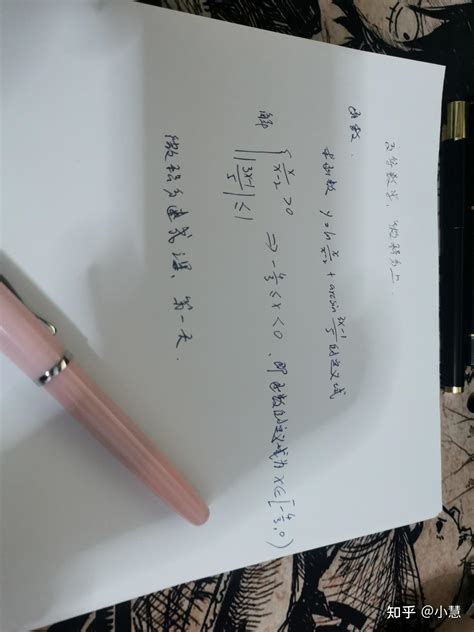 高等数学, 微积分上.
函数.
求函数 y=ln x/(x-2) + arcsin (3x-1)/5 的定义域
解 { x/(x-2) >0
|(3x-1)/5| ≤1 ⇒ -4/3 ≤ x < 0 , 即函数的定义域为 x∈[-4/3,0)
微积分速成课, 第一天.
知乎 @小慧